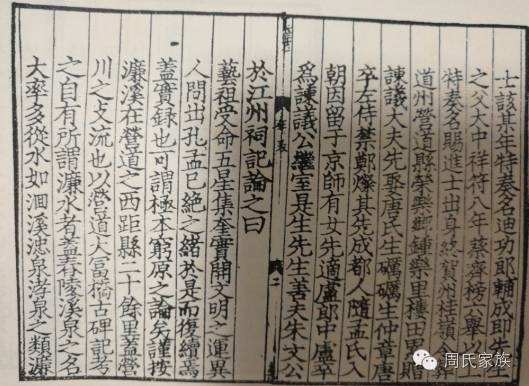 士該某年特奏名迪功郎輔成即先生
之父大中祥符八年蔡齊榜公舉以
特奏名賜進士出身終賀州桂嶺令
道州營道縣榮樂鄉鍾樂里樓田贈
諫議大夫先娶唐氏生礪礪生仲章唐
卒左侍禁鄭燦其先成都人隨孟氏入
朝因留于京師有女先適盧郎中盧卒
爲諫議公繼室是生先生善夫朱文公
年表
二
於江州祠記論之曰
藝祖受命五星集奎實開文明之運異
人間出孔孟已絶之緒於是而復續焉
蓋實録也可謂極本窮原之論矣謹按
濂溪在營道之西距縣二十餘里蓋營
川之支流也以營道大富橋古碑記考
之自有所謂濂水者蓋舂陵溪泉之名
大率多從水如洄溪潓泉涍泉之類濂
周氏家族